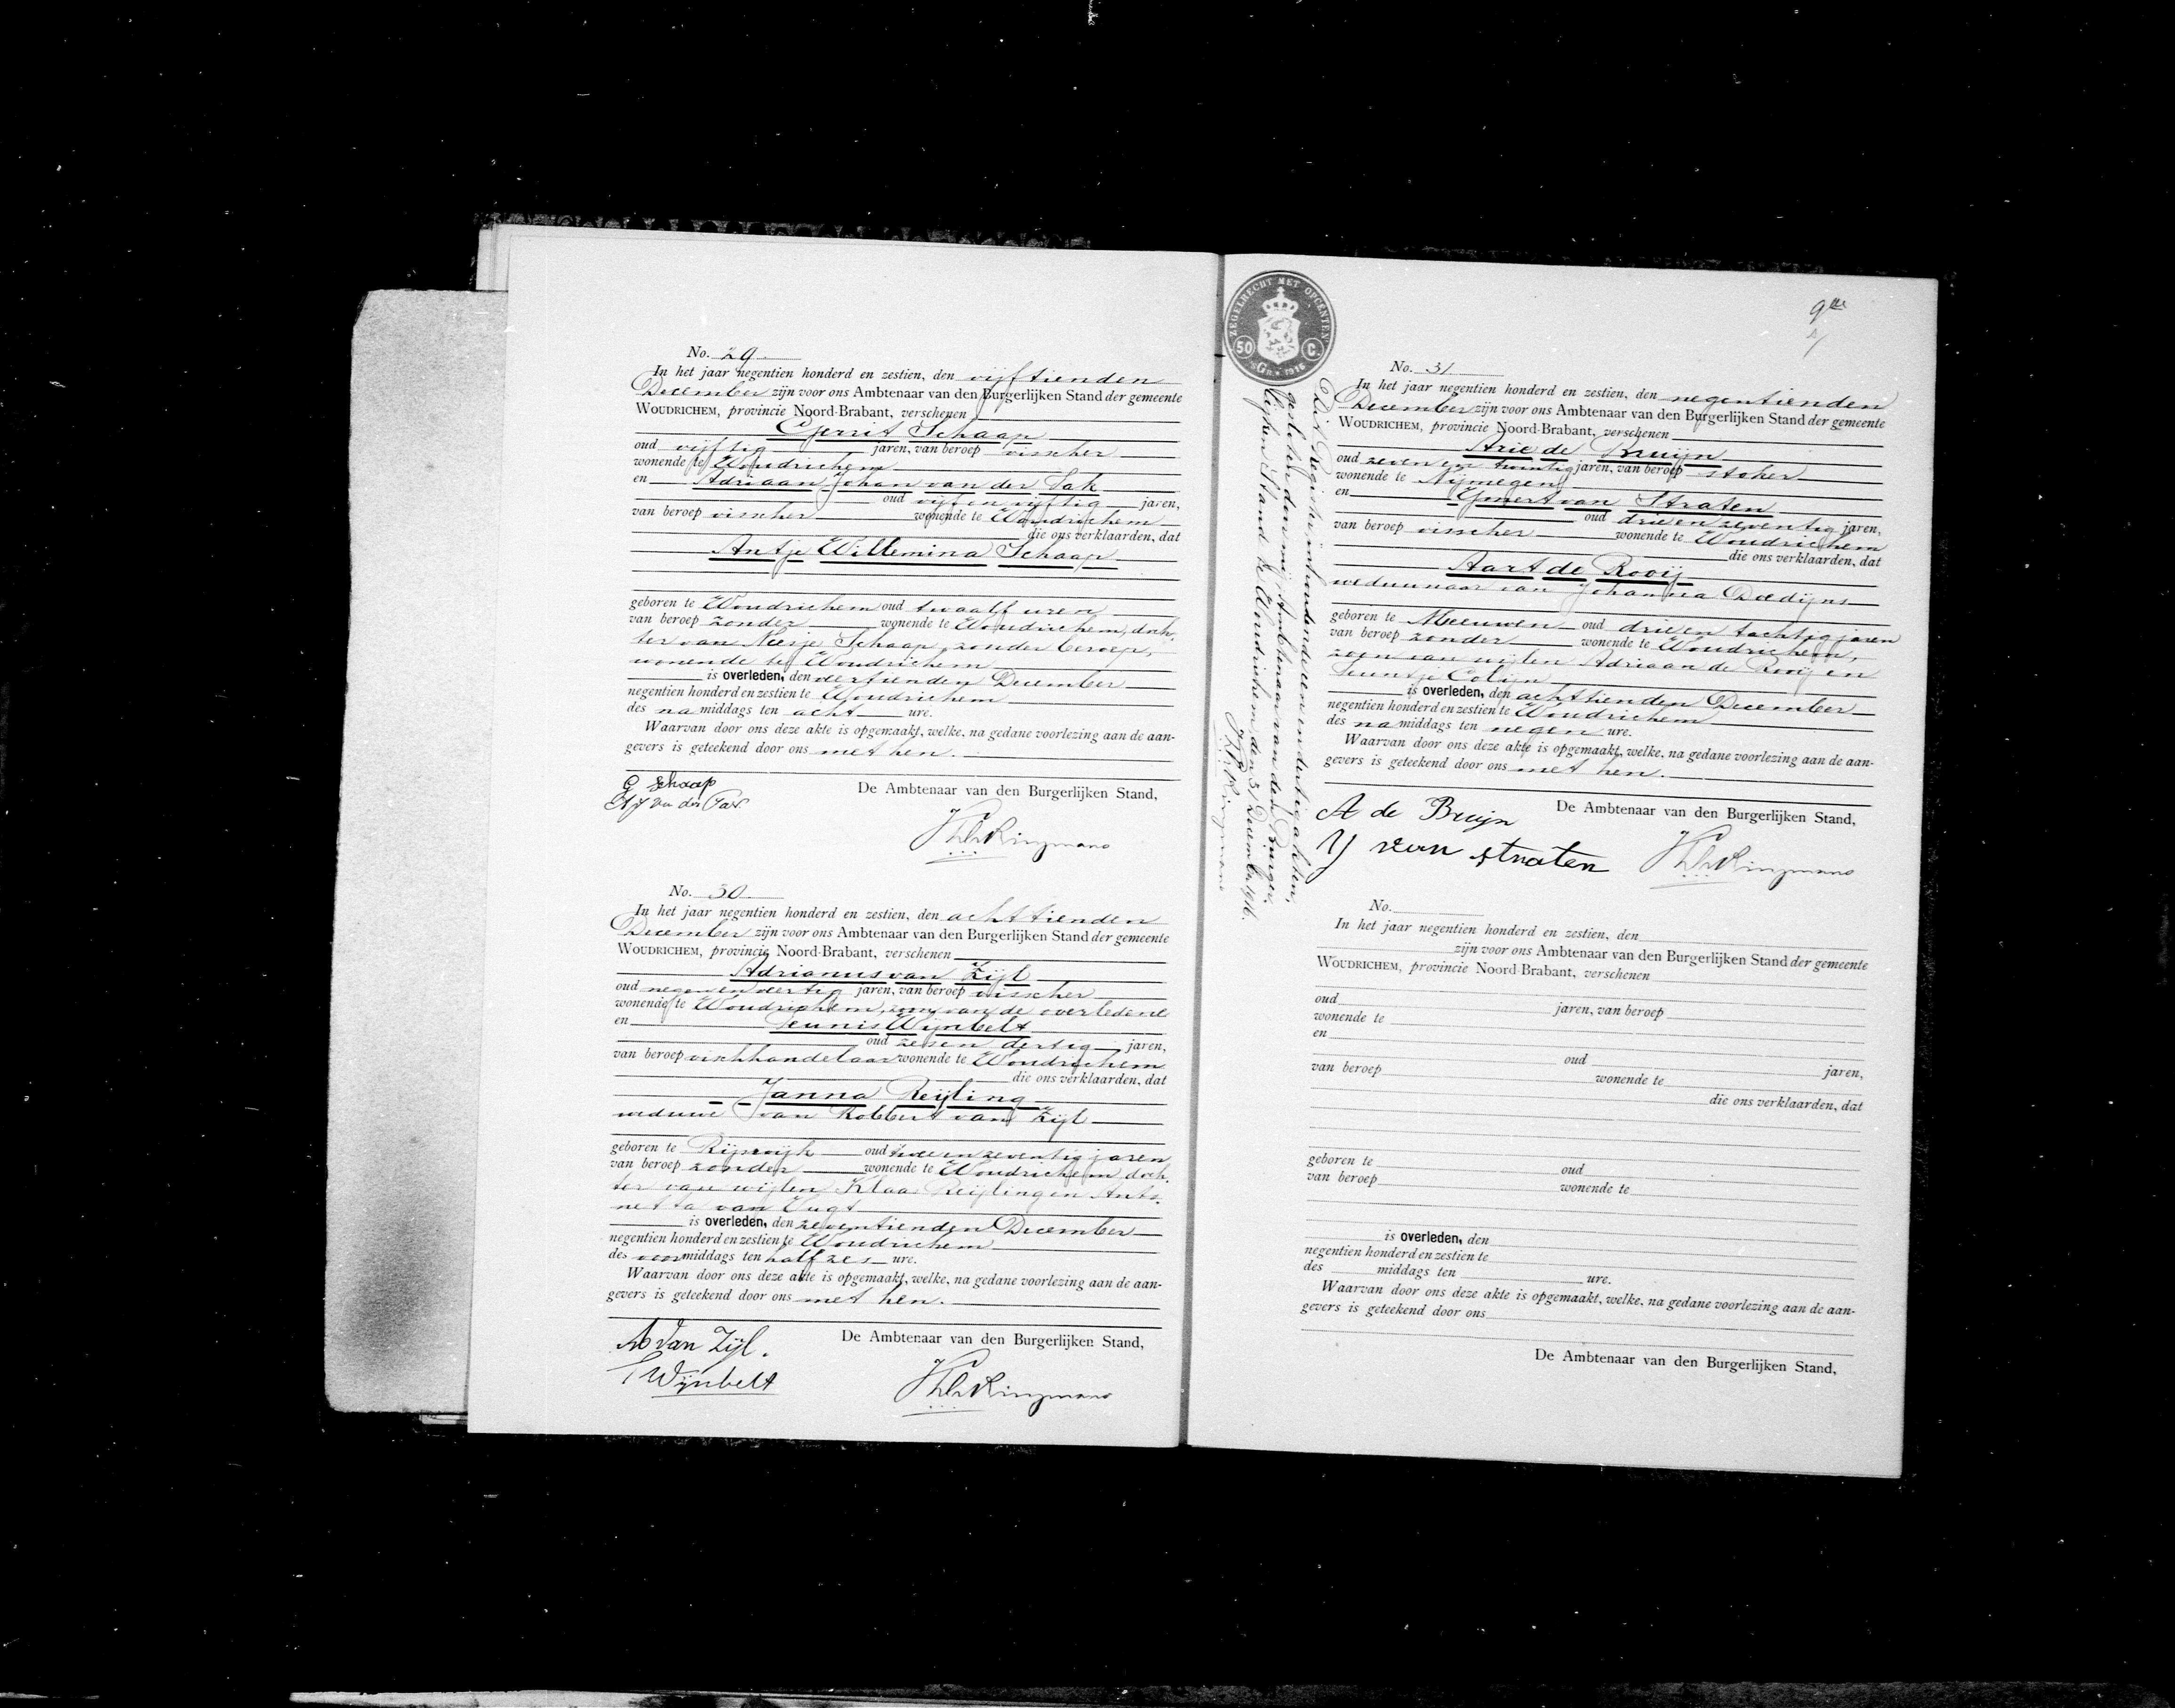 No. 29
In het jaar negentien honderd en zestien, den vijftienden
December zijn voor ons Ambtenaar van den Burgerlijken Stand der gemeente
WOUDRICHEM, provincie Noord-Brabant, verschenen
Gerrit Schaap
oud vijftig jaren, van beroep visscher
wonende te Woudrichem
en Adriaan Johan van der Tak
oud vijf en vijftig jaren,
van beroep visscher wonende te Woudrichem
die ons verklaarden, dat
Antje Willemina Schaap
geboren te Woudrichem oud twaalf uren
van beroep zonder wonende te Woudrichem, doch-
ter van Neesje Schaap, zonder beroep,
wonende te Woudrichem
is overleden, den veertienden December
negentien honderd en zestien te Woudrichem
des namiddags ten acht ure.
Waarvan door ons deze akte is opgemaakt, welke, na gedane voorlezing aan de aan-
gevers is geteekend door ons met hen.
De Ambtenaar van den Burgerlijken Stand,
G Schaap
A J van der Tak
No. 30
In het jaar negentien honderd en zestien, den achttienden
December zijn voor ons Ambtenaar van den Burgerlijken Stand der gemeente
WOUDRICHEM, provincie Noord-Brabant, verschenen
Adrianus van Zijl
oud negenenveertig jaren, van beroep visscher
wonende te Woudrichem, zoon van de overledene
en Teunis Wijnbelt
oud zesen dertig jaren,
van beroep vischhandelaar wonende te Woudrichem
die ons verklaarden, dat
Janna Reijling
weduwe van Robbert van Zijl
geboren te Rijswijk oud tweeenzeventig jaren
van beroep zonder wonende te Woudrichem, doch-
ter van wijlen Klaas Reijling en Anto-
netta van Vugt
is overleden, den zeventienden December
negentien honderd en zestien te Woudrichem
des voormiddags ten half zes ure.
Waarvan door ons deze akte is opgemaakt, welke, na gedane voorlezing aan de aan-
gevers is geteekend door ons met hen.
De Ambtenaar van den Burgerlijken Stand,
A van Zijl.
T Wijnbelt
ZEGELRECHT MET OPCENTEN
50 C.
1916
9de
No. 31
In het jaar negentien honderd en zestien, den negentienden
December zijn voor ons Ambtenaar van den Burgerlijken Stand der gemeente
WOUDRICHEM, provincie Noord-Brabant, verschenen
Arie de Bruijn
oud zeven en twintig jaren, van beroep stoker
wonende te Nijmegen
en IJmert van Straten
oud drie en zeventig jaren,
van beroep visscher wonende te Woudrichem
die ons verklaarden, dat
Aart de Rooij
weduwnaar van Johanna Doedijns
geboren te Meeuwen oud drie en tachtig jaren
van beroep zonder wonende te Woudrichem,
zoon van wijlen Adriaan de Rooij en
Teuntje Colijn
is overleden, den achttienden December
negentien honderd en zestien te Woudrichem
des namiddags ten negen ure.
Waarvan door ons deze akte is opgemaakt, welke, na gedane voorlezing aan de aan-
gevers is geteekend door ons met hen.
De Ambtenaar van den Burgerlijken Stand,
A de Bruijn
IJ van Straten
Dit Register inhoudende een en dertig akten,
gesloten door mij Ambtenaar van den Burger-
lijken Stand te Woudrichem den 31 December 1916.
No.
In het jaar negentien honderd en zestien, den
zijn voor ons Ambtenaar van den Burgerlijken Stand der gemeente
WOUDRICHEM, provincie Noord-Brabant, verschenen
oud jaren, van beroep
wonende te
en
oud jaren,
van beroep wonende te
die ons verklaarden, dat
geboren te oud
van beroep wonende te
is overleden, den
negentien honderd en zestien te
des middags ten ure.
Waarvan door ons deze akte is opgemaakt, welke, na gedane voorlezing aan de aan-
gevers is geteekend door ons
De Ambtenaar van den Burgerlijken Stand,